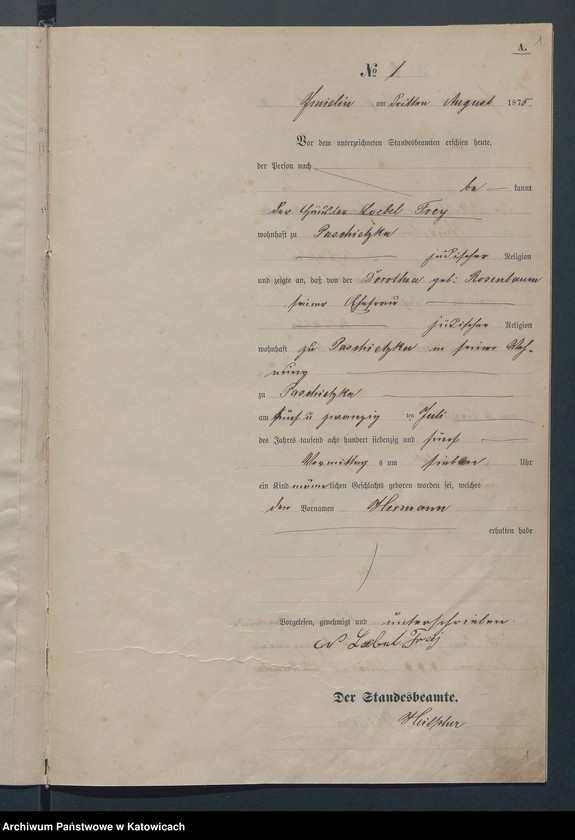 1
A.
No 1.
Imielin am dritten August 1875.
Vor dem unterzeichneten Standesbeamten erschien heute,
der Person nach
be kannt
der Häusler Loebel Frey
wohnhaft zu Paschietzka
jüdischer Religion
und zeigte an, daß von der Dorothea geb: Rosenbaum
seiner Ehefrau
jüdischer Religion
wohnhaft zu Paschietzka in seiner Woh-
nung
zu Paschietzka
am fünf u zwanzig ten Juli
des Jahres tausend acht hundert siebenzig und fünf
Vormittag s um sieben Uhr
ein Kind männlichen Geschlechts geboren worden sei, welches
den Vornamen Hermann
erhalten habe
Vorgelesen, genehmigt und unterschrieben
Loebel Frey
Der Standesbeamte.
1
Archiwum Państwowe w Katowicach